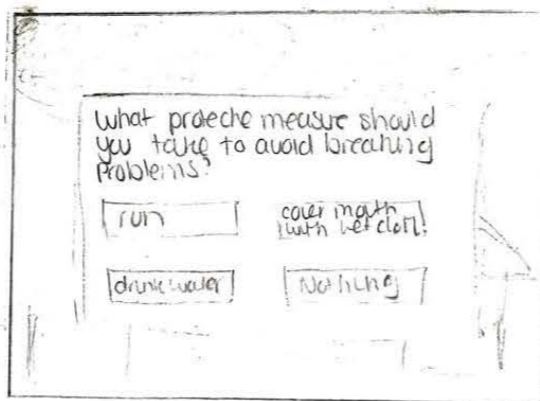 what proteche measure should
you take to avoid breathing
problems?
run
cover mouth
with wet cloth!
drink water
Nothing